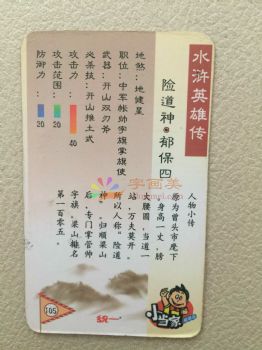 水浒英雄传
险道神·郁保四
人物小传
原为曾头市麾下
身高一丈，膀
大腰圆，当道一
站，万夫莫开。
所以人称“险道
神”。归顺梁山
后，专门掌管帅
字旗。梁山排名
第一百零五。
地煞：地健星
职位：中军帐帅字旗掌旗使
武器：开山双刃斧
必杀技：开山推土式
攻击力：
40
攻击范围：
20
防御力：
20
字画美
105
统一
小当家